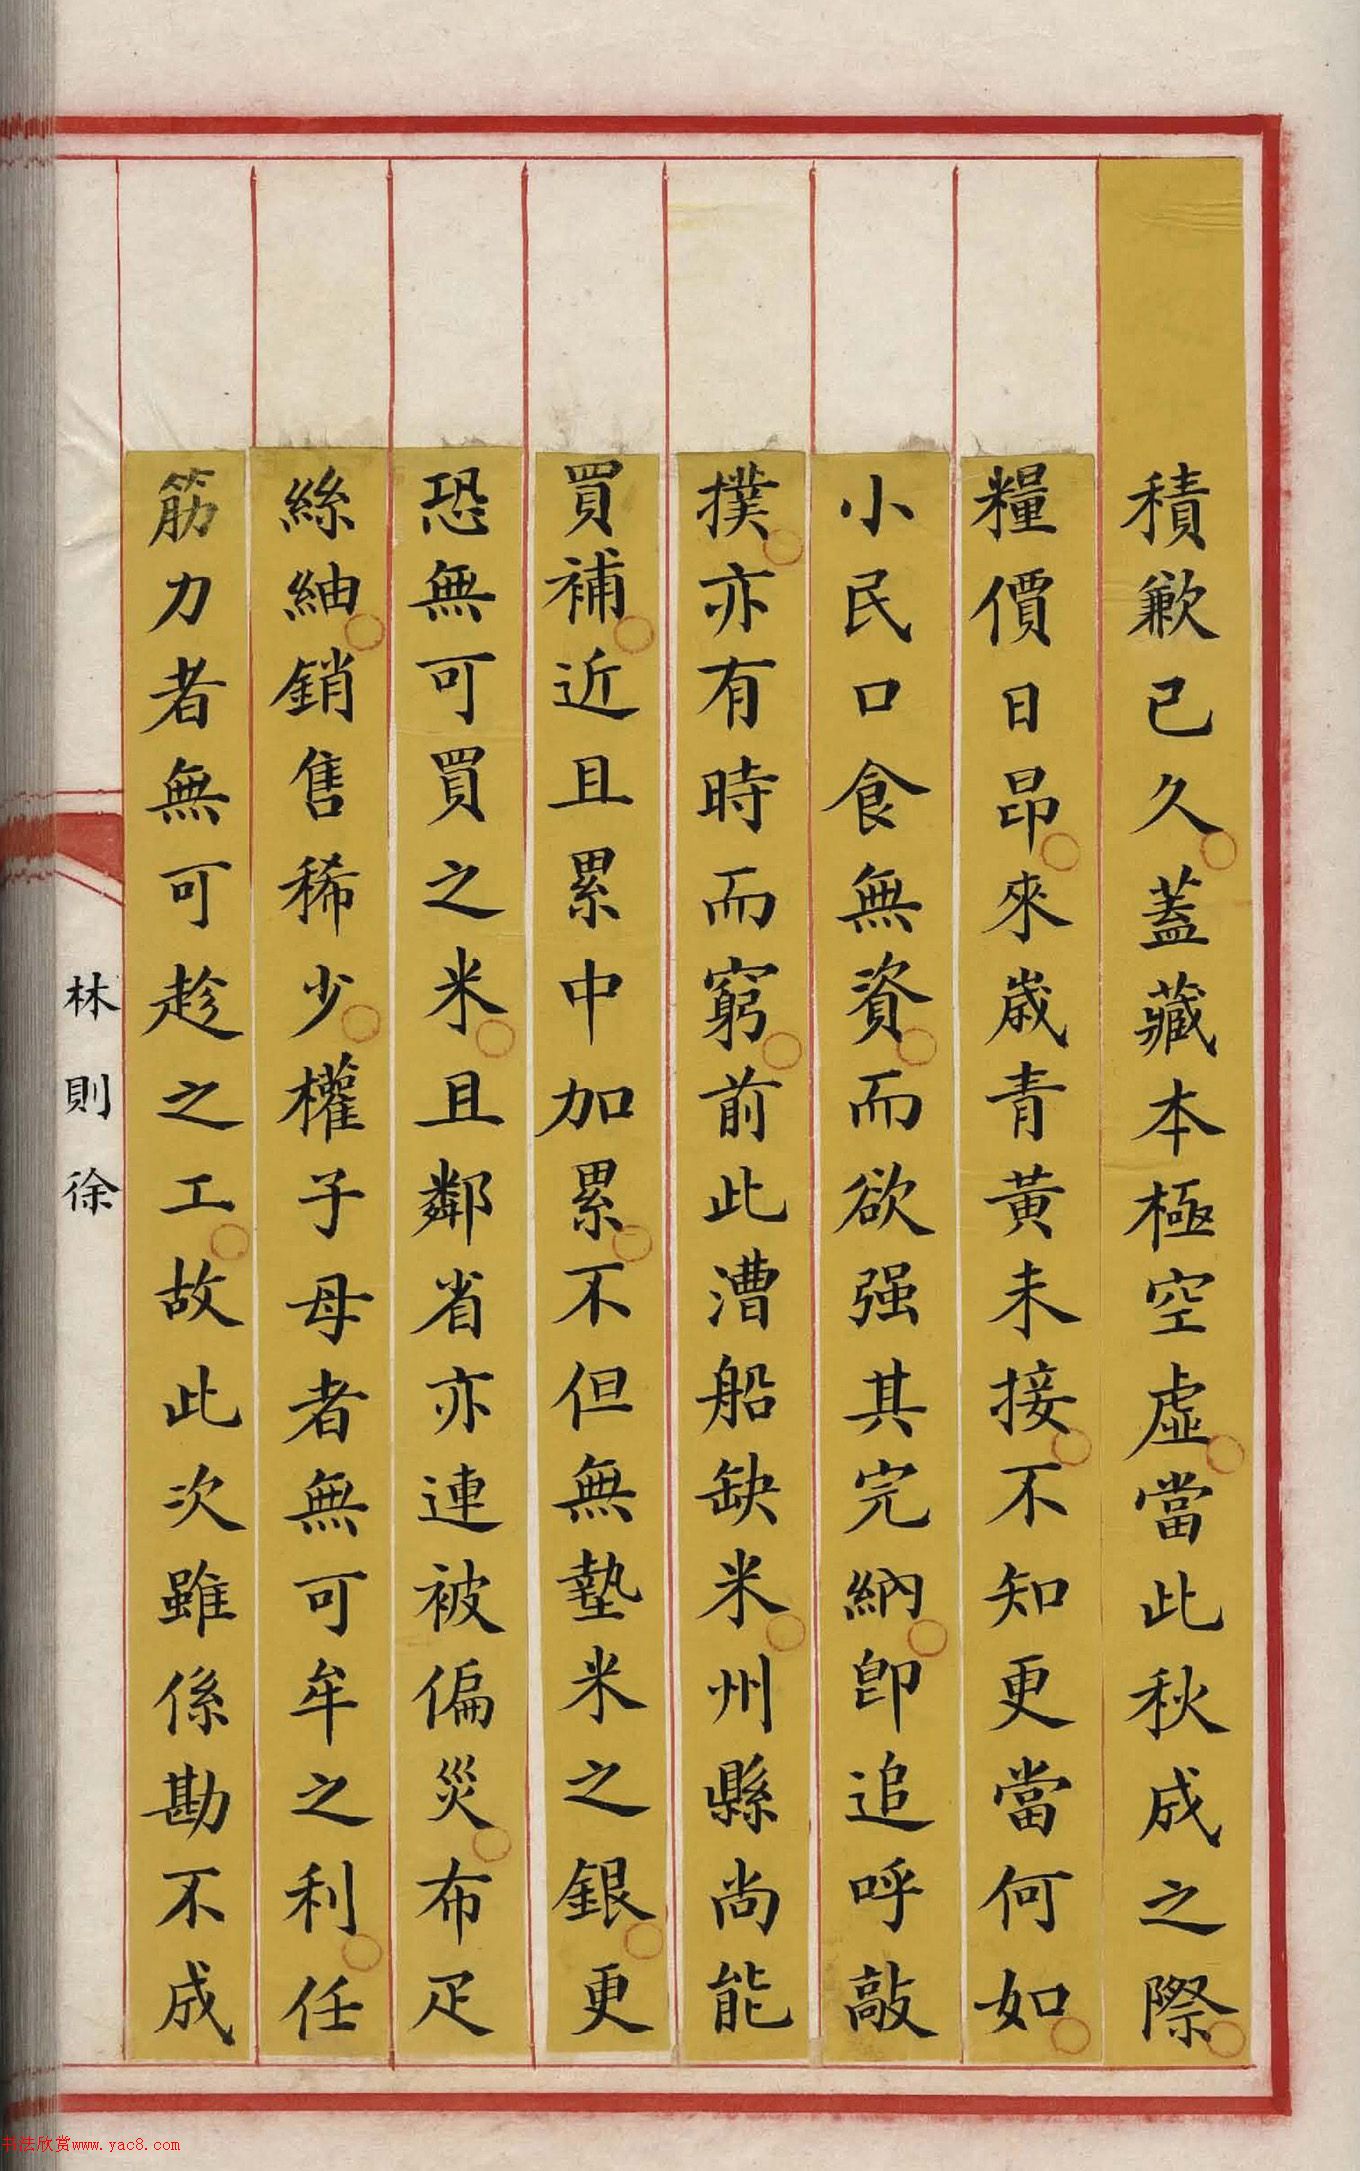 積歉已久蓋藏本極空虛當此秋成之際
糧價日昂來歲青黃未接不知更當何如
小民口食無資而欲强其完納卽追呼敲
撲亦有時而窮前此漕船缺米州縣尚能
買補近且累中加累不但無墊米之銀更
恐無可買之米且鄰省亦連被偏災布疋
絲紬銷售稀少權子母者無可牟之利任
筋力者無可趁之工故此次雖係勘不成
林則徐
书法欣赏www.yac8.com